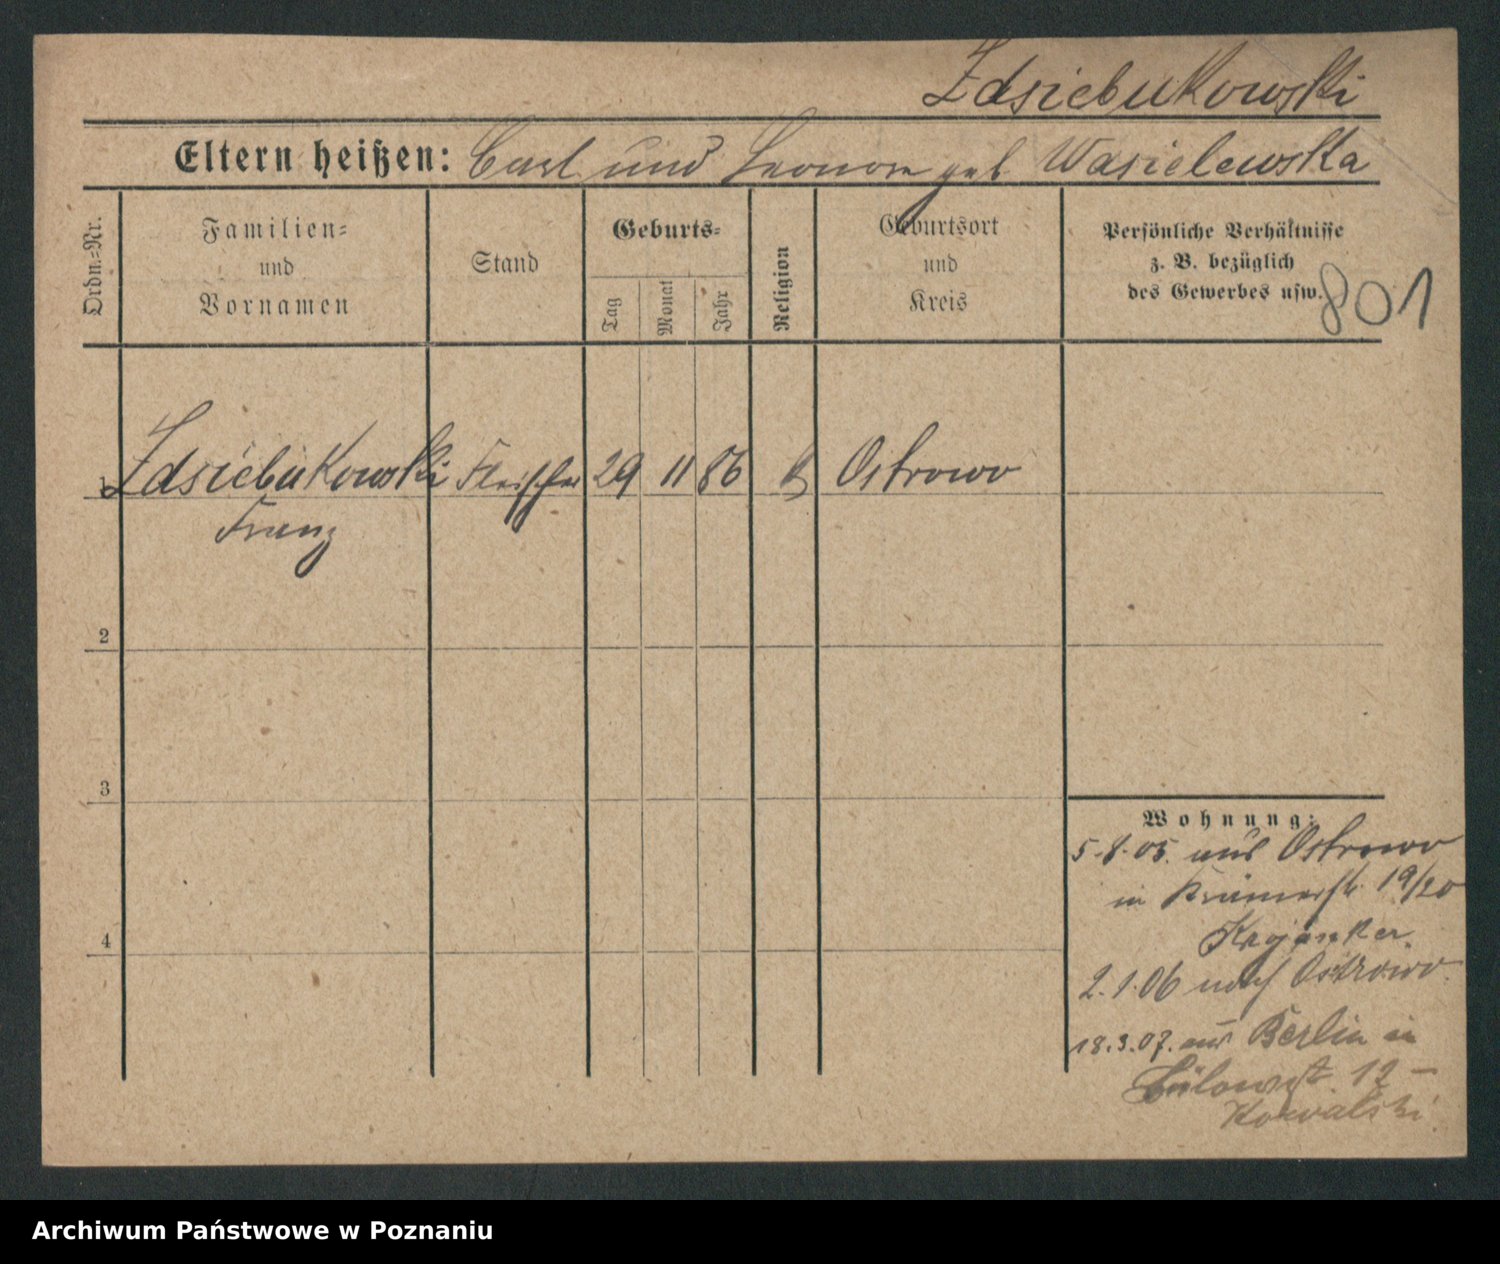 Zdsiebukowski
Eltern heißen: Carl und Leonore geb. Wasielewska
Ordn.-Nr.
Familien-
und
Vornamen
Stand
Geburts-
Tag
Monat
Jahr
Religion
Geburtsort
und
Kreis
Persönliche Verhältnisse
z. B. bezüglich
des Gewerbes usw.
801
1 Zdsiebukowski Fleischer 29 11 86 k Ostrowo
Franz
2
3
4
Wohnung:
5.8.05. aus Ostrowo
in Krämerstr. 19/20
Krojanker.
2.1.06 nach Ostrowo.
18.3.07. aus Berlin in
Bülowst 12 –
Kowalski
Archiwum Państwowe w Poznaniu